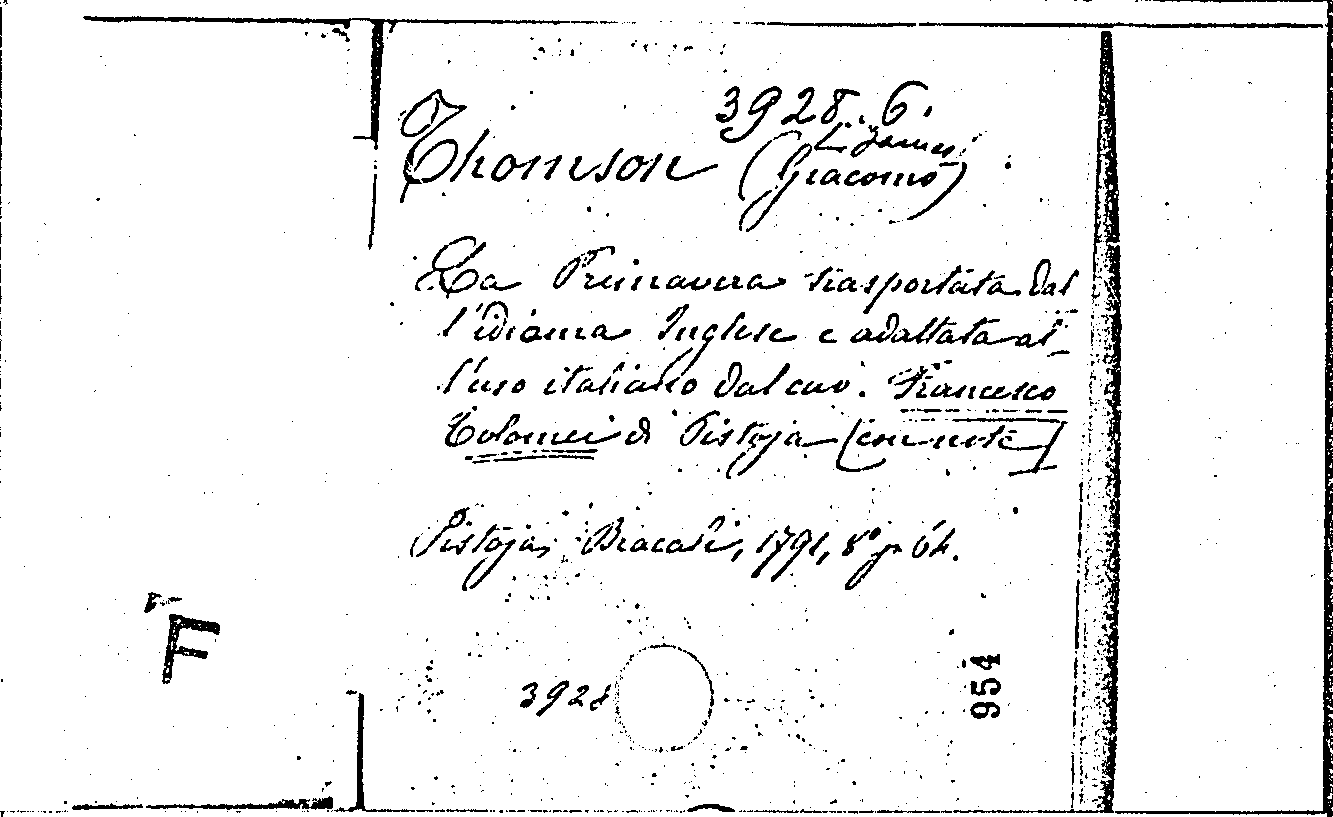 3928. 6.
Thomson (Giacomo)
James
La Primavera trasportata dal
l'idioma Inglese e adattata al-
l'uso italiano dal cav. Francesco
Tolomei di Pistoja (con note)
Pistoja, Bracali, 1791, 8° p. 64.
F
3928
954